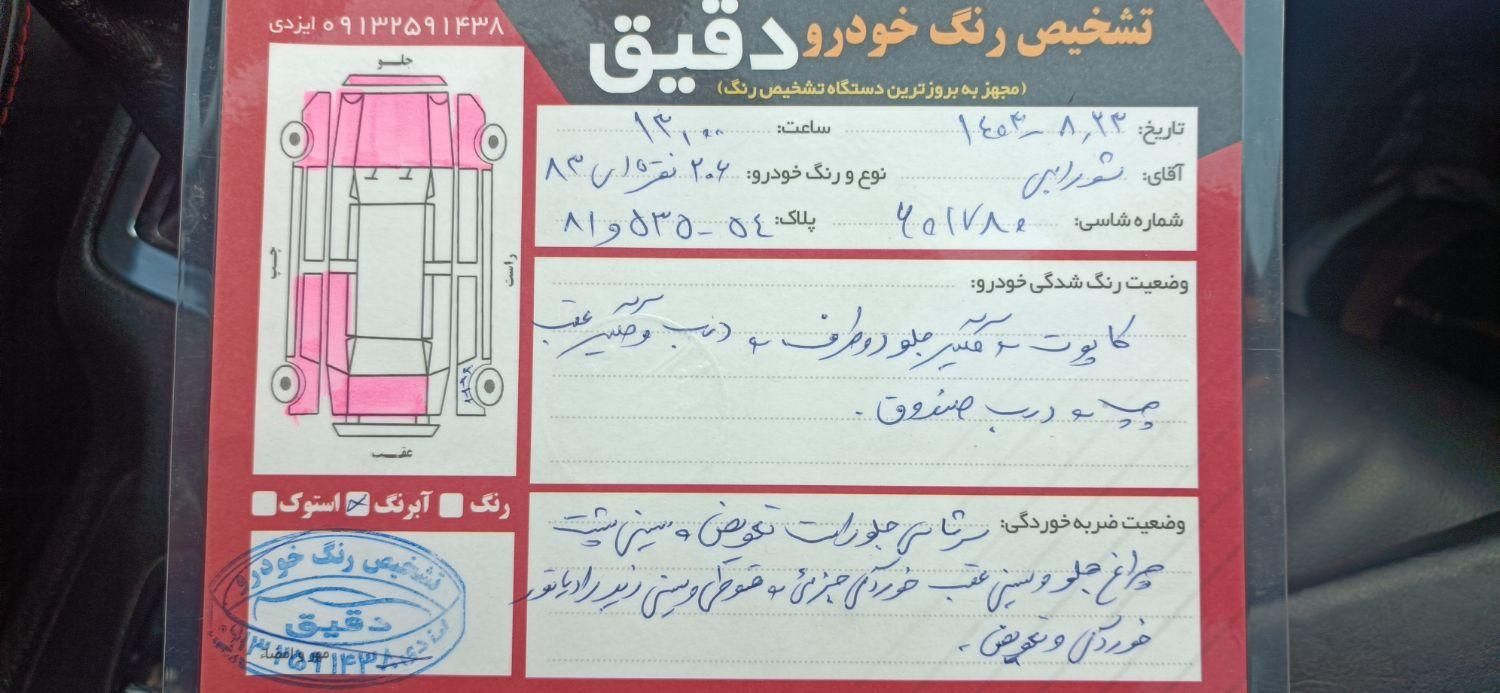 تشخیص رنگ خودرو دقیق
(مجهز به بروزترین دستگاه تشخیص رنگ)
۰۹۱۳۲۵۹۱۴۳۸ ایزدی
تاریخ: ۱۴۰۳-۸,۲۳ ساعت: ۱۳,۰۰
آقای: شورابی نوع و رنگ خودرو: ۲۰۶ نقره ای ۸۳
شماره شاسی: ۶۰۱۷۸۰ پلاک: ۵۴ - ۵۳۵ و ۸۱
جلو
چپ
راست
عقب
وضعیت رنگ شدگی خودرو:
کاپوت و گلگیر جلو دو طرف و درب و گلگیر عقب
چپ و درب صندوق.
رنگ آبرنگ استوک
وضعیت ضربه خوردگی: سرشاسی جلو راست تعویض و سینی پشت
چراغ جلو و سینی عقب خوردگی جزئی و قوطی و سینی زیر رادیاتور
خوردگی و تعویض.
تشخیص رنگ خودرو
دقیق
ایزدی
۰۹۱۳۲۵۹۱۴۳۸
مهر و امضاء